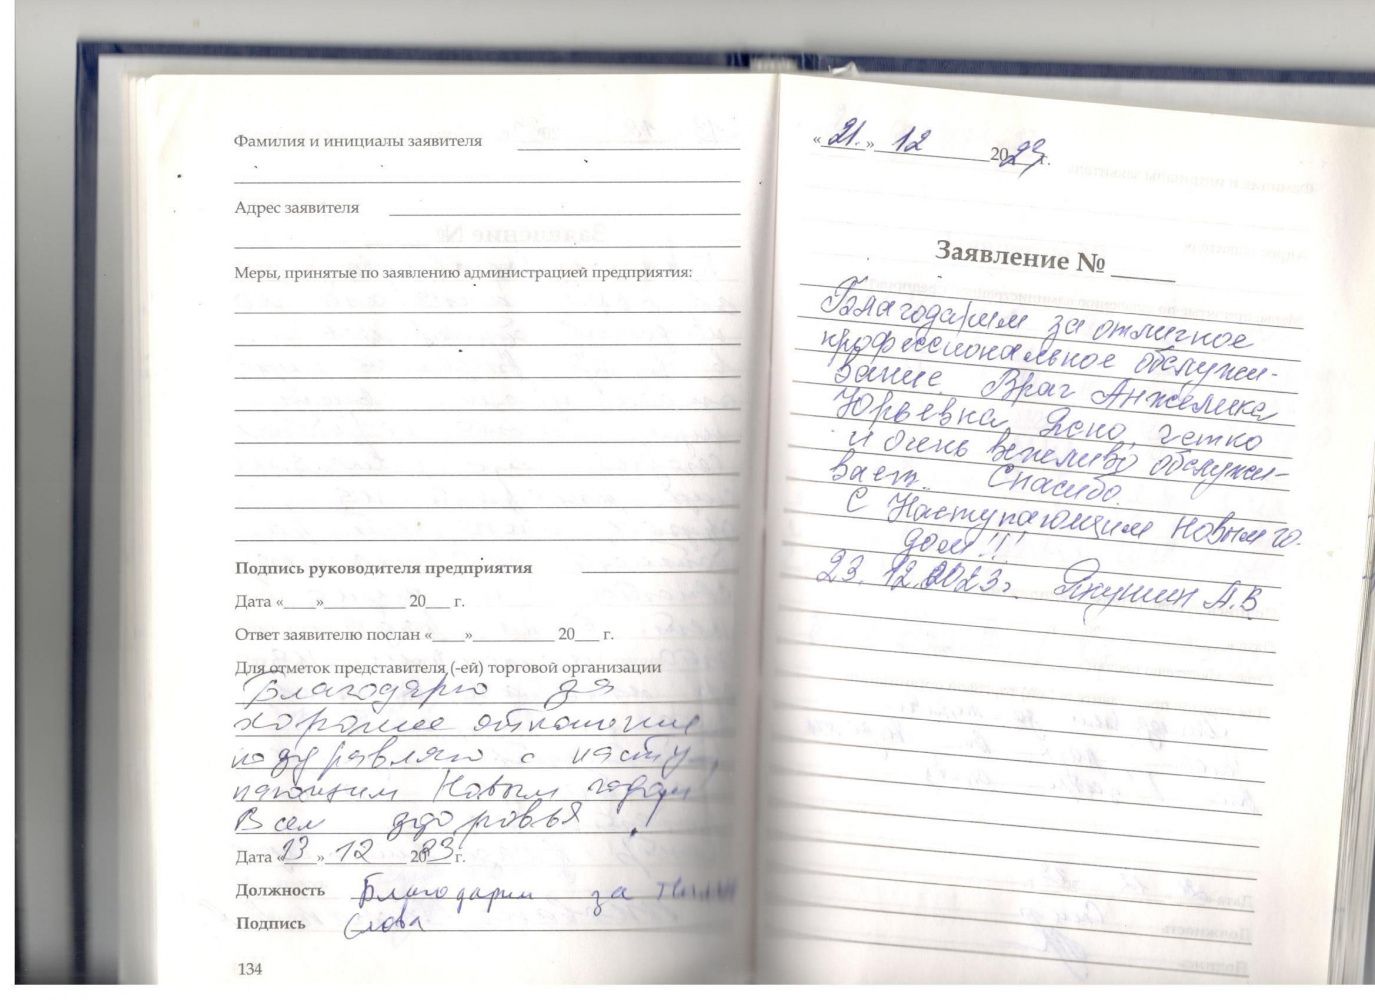 Фамилия и инициалы заявителя
Адрес заявителя
Меры, принятые по заявлению администрацией предприятия:
Подпись руководителя предприятия
Дата «____»__________ 20___ г.
Ответ заявителю послан «____»__________ 20___ г.
Для отметок представителя (-ей) торговой организации
Благодарю за
хорошее отношение
поздравляю с насту
пающим Новым годом
Всем здоровья
Дата «13» 12 2023 г.
Должность Благодарим за теплые
Подпись слова
134
«21.» 12 2023 г.
Заявление № _____
Благодарим за отличное
профессиональное обслужи-
вание. Врач Анжелика
Юрьевна. Ясно, четко
и очень вежливо обслужи-
вает. Спасибо.
С Наступающим Новым го-
дом!!!
23.12.2023г. Якушин А.В